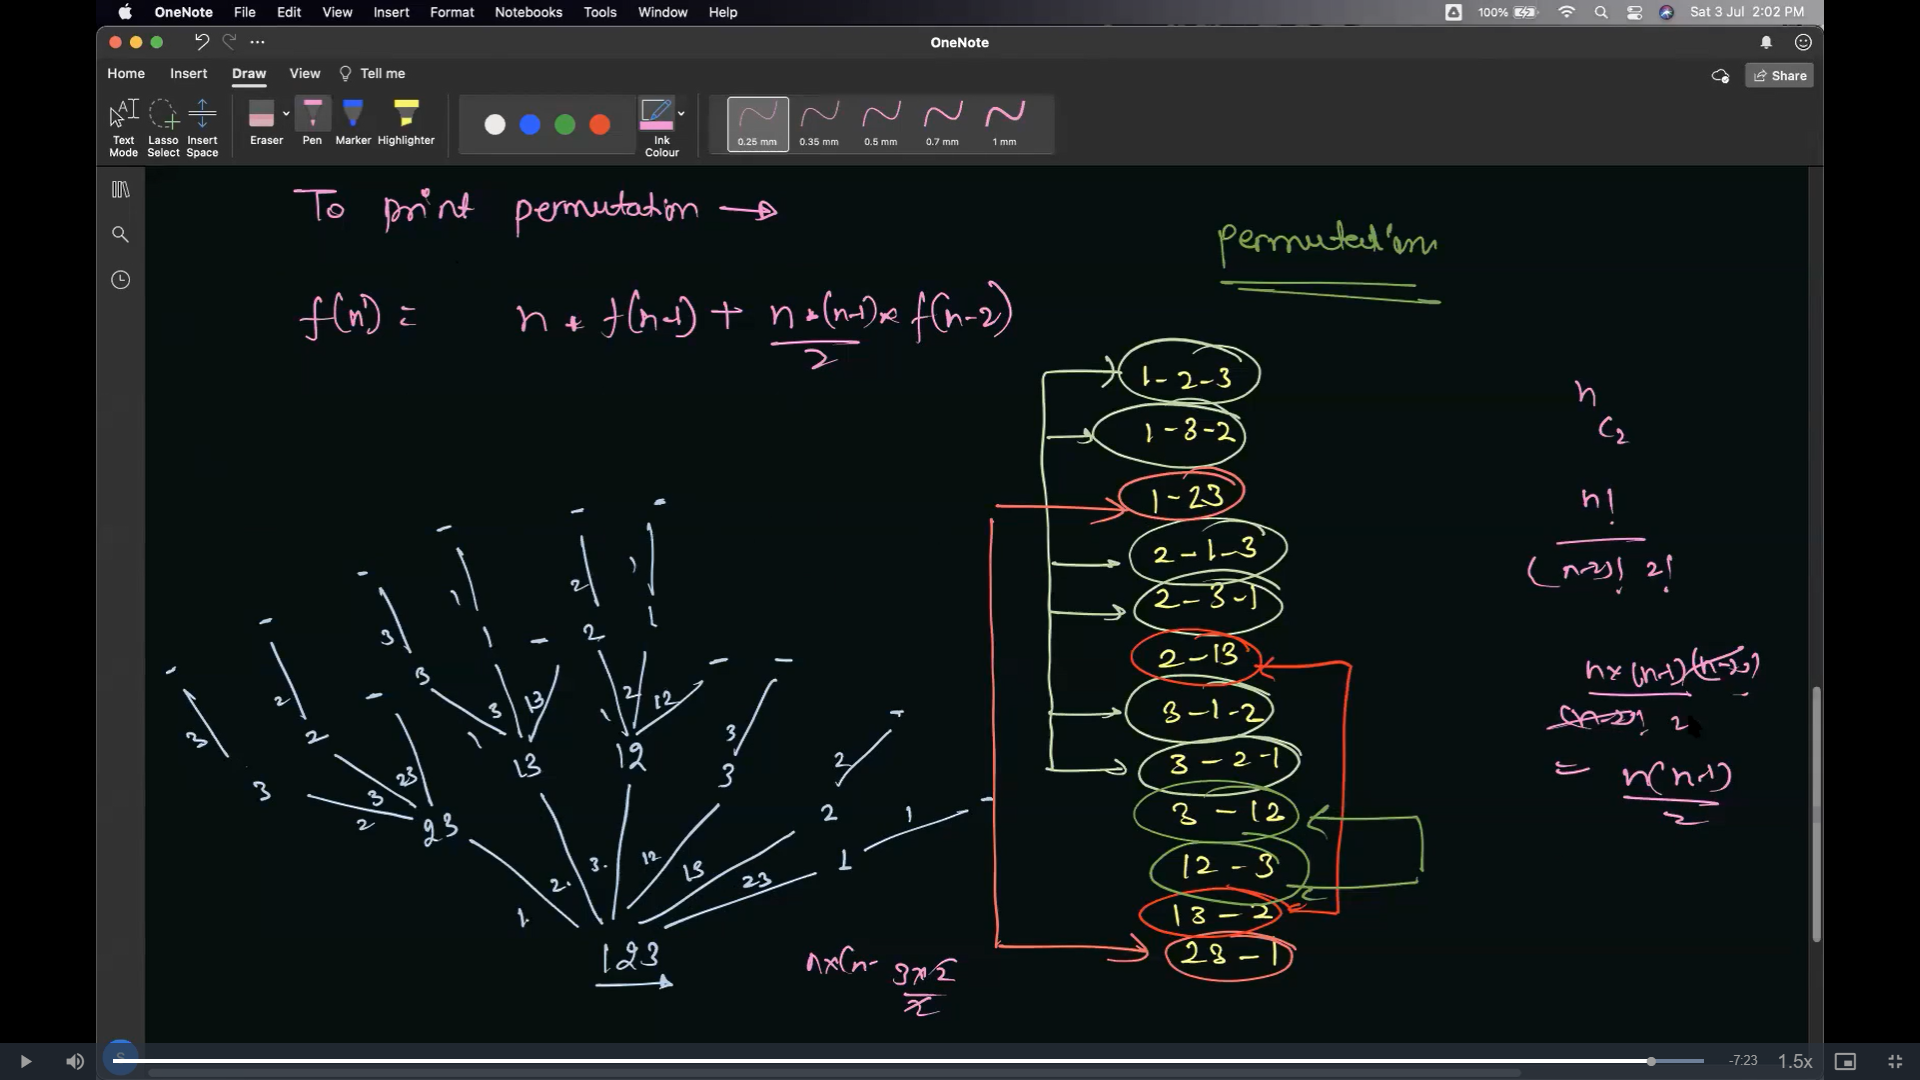 OneNote File Edit View Insert Format Notebooks Tools Window Help 100% Sat 3 Jul 2:02 PM
OneNote
Home Insert Draw View Tell me Share
Text Mode Lasso Select Insert Space Eraser Pen Marker Highlighter Ink Colour 0.25 mm 0.35 mm 0.5 mm 0.7 mm 1 mm
To print permutation →
permutation
f(n) = n * f(n-1) + n*(n-1)/2 * f(n-2)
1-2-3
1-3-2
1-23
2-1-3
2-3-1
2-13
3-1-2
3-2-1
3-12
12-3
13-2
23-1
n
C2
n!
(n-2)! 2!
n×(n-1)(n-2)
(n-2)! 2
= n(n-1)
2
- - - -
2 1
3 1 1
2 3 1 - 2
3 2 3 3 13 1 2 12 - -
3 2 23 1 13 12 3 3 2 -
3 2 23 2 1 1 -
1 2 3 12 13 23
123
n×(n-
3×2
2
S
-7:23 1.5x